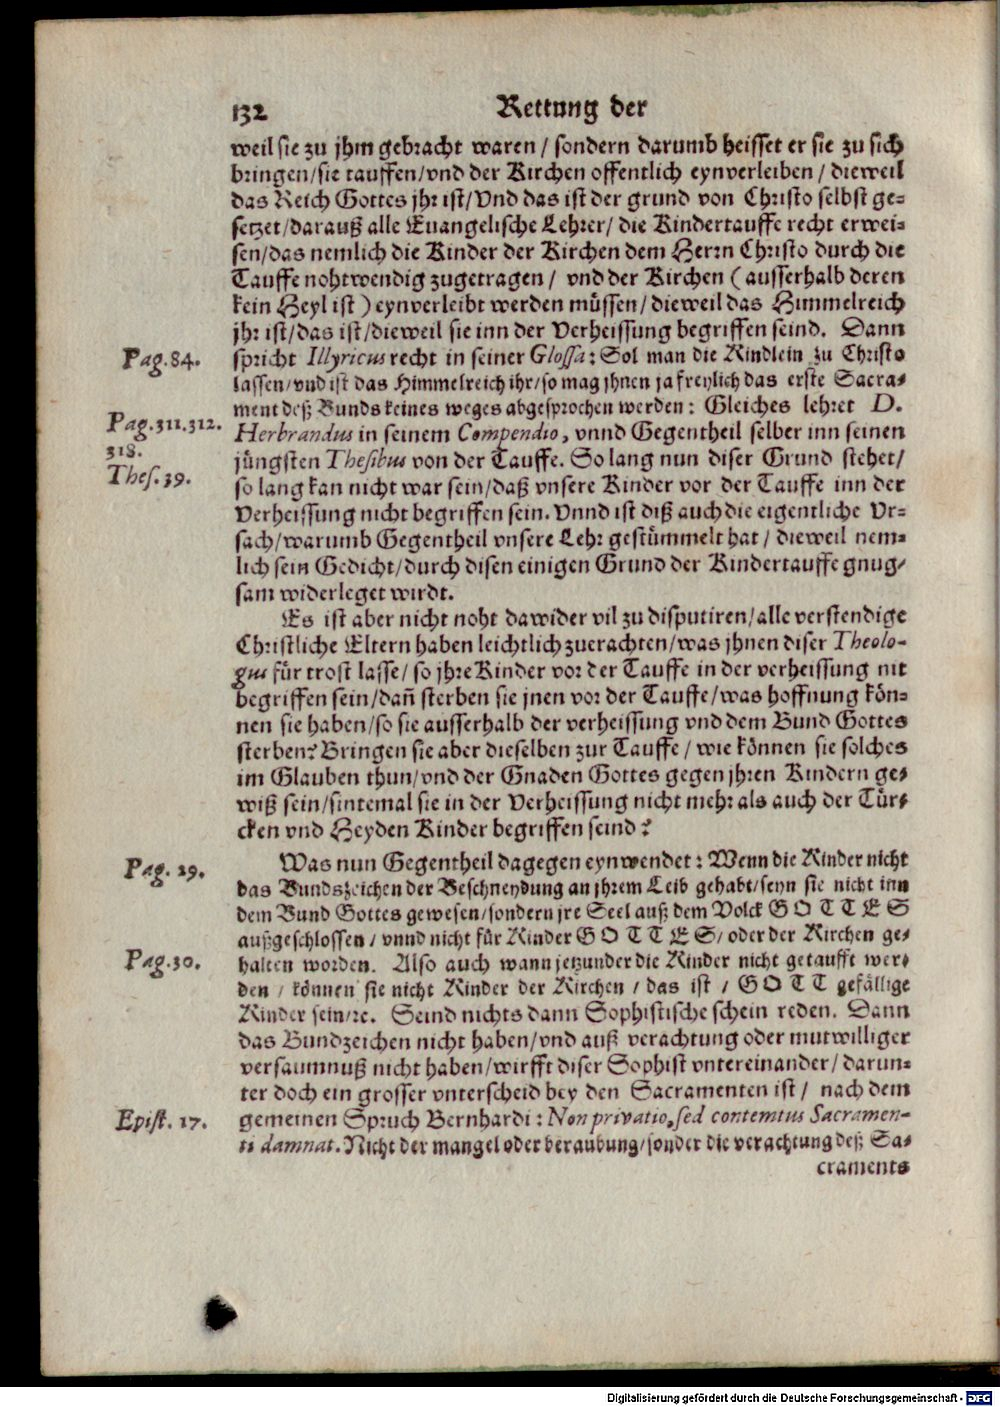 132 Rettung der
weil sie zu jhm gebracht waren / sondern darumb heisset er sie zu sich
bringen/sie tauffen/vnd der Kirchen offentlich eynverleiben / dieweil
das Reich Gottes jhr ist/Vnd das ist der grund von Christo selbst ge-
setzet/darauß alle Euangelische Lehrer/ die Kindertauffe recht erwei-
sen/das nemlich die Kinder der Kirchen dem Herrn Christo durch die
Tauffe nohtwendig zugetragen / vnd der Kirchen ( ausserhalb deren
kein Heyl ist ) eynverleibt werden müssen / dieweil das Himmelreich
jhr ist/das ist/dieweil sie inn der Verheissung begriffen seind. Dann
Pag. 84.
spricht Illyricus recht in seiner Glossa: Sol man die Kindlein zu Christo
lassen/vnd ist das Himmelreich ihr/so mag jhnen ja freylich das erste Sacra-
ment deß Bunds keines weges abgesprochen werden: Gleiches lehret D.
Pag. 311. 312.
318.
Thes. 39.
Herbrandus in seinem Compendio, vnnd Gegentheil selber inn seinen
jüngsten Thesibus von der Tauffe. So lang nun diser Grund stehet/
so lang kan nicht war sein/daß vnsere Kinder vor der Tauffe inn der
Verheissung nicht begriffen sein. Vnnd ist diß auch die eigentliche Vr-
sach/warumb Gegentheil vnsere Lehr gestümmelt hat / dieweil nem-
lich sein Gedicht/durch disen einigen Grund der Kindertauffe gnug-
sam widerleget wirdt.
Es ist aber nicht noht dawider vil zu disputiren/alle verstendige
Christliche Eltern haben leichtlich zuerachten/was jhnen diser Theolo-
gus für trost lasse/ so jhre Kinder vor der Tauffe in der verheissung nit
begriffen sein/dañ sterben sie jnen vor der Tauffe/was hoffnung kön-
nen sie haben/so sie ausserhalb der verheissung vnd dem Bund Gottes
sterben? Bringen sie aber dieselben zur Tauffe / wie können sie solches
im Glauben thun/vnd der Gnaden Gottes gegen jhren Kindern ge-
wiß sein/sintemal sie in der Verheissung nicht mehr als auch der Tür-
cken vnd Heyden Kinder begriffen seind?
Pag. 29.
Was nun Gegentheil dagegen eynwendet: Wenn die Kinder nicht
das Bundszeichen der Beschneydung an jhrem Leib gehabt/seyn sie nicht inn
dem Bund Gottes gewesen/sondern jre Seel auß dem Volck GOTTES
außgeschlossen / vnnd nicht für Kinder GOTTES/ oder der Kirchen ge-
Pag. 30.
halten worden. Also auch wann jetzunder die Kinder nicht getaufft wer-
den / können sie nicht Kinder der Kirchen / das ist / GOTT gefällige
Kinder sein/rc. Seind nichts dann Sophistische schein reden. Dann
das Bundzeichen nicht haben/vnd auß verachtung oder mutwilliger
versaumnuß nicht haben/wirfft diser Sophist vntereinander/ darun-
ter doch ein grosser vnterscheid bey den Sacramenten ist / nach dem
Epist. 17.
gemeinen Spruch Bernhardi: Non privatio, sed contemtus Sacramen-
ti damnat. Nicht der mangel oder beraubung/sonder die verachtung deß Sa-
craments
Digitalisierung gefördert durch die Deutsche Forschungsgemeinschaft - DFG